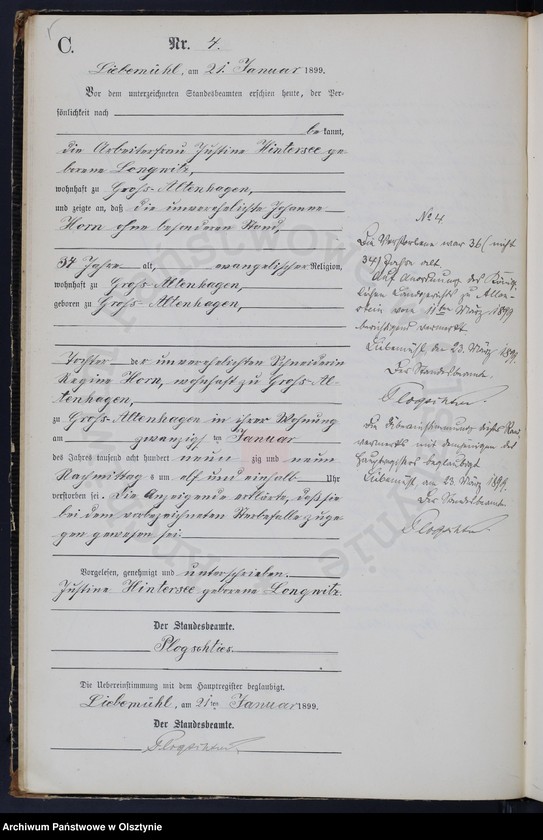 C.
Nr. 4.
Liebemühl, am 21. Januar 1899.
Vor dem unterzeichneten Standesbeamten erschien heute, der Per-
sönlichkeit nach
bekannt,
die Arbeiterfrau Justine Wintersee ge-
borene Longwitz,
wohnhaft zu Groß-Altenhagen,
und zeigte an, daß die unverehelichte Johanne
Horn ohne besonderen Stand,
34 Jahre alt, evangelischer Religion,
wohnhaft zu Groß-Altenhagen,
geboren zu Groß-Altenhagen,
Tochter der unverehelichten Schneiderin
Regine Horn, wohnhaft zu Groß-Al-
tenhagen,
zu Groß-Altenhagen in ihrer Wohnung
am zwanzigsten Januar
des Jahres tausend acht hundert neunzig und neun
Nachmittags um elf und einhalb Uhr
verstorben sei. Die Anzeigende erklärte, daß sie
bei dem vorbezeichneten Sterbefalle zuge-
gen gewesen sei.
Vorgelesen, genehmigt und unterschrieben.
Justine Wintersee geborene Longwitz.
Der Standesbeamte.
Plogschties.
Die Uebereinstimmung mit dem Hauptregister beglaubigt.
Liebemühl, am 21ten Januar 1899.
Der Standesbeamte.
No 4.
Die Verstorbene war 36 (nicht
34) Jahre alt.
Auf Anordnung des König-
lichen Landgerichts zu Allen-
stein vom 11ten März 1899
berichtigend vermerkt
Liebemühl, den 23. März 1899.
Der Standesbeamte.
Die Übereinstimmung dieses Rand-
vermerks mit demjenigen des
Hauptregisters beglaubigt
Liebemühl, am 23. März 1899.
Der Standesbeamte
Archiwum Państwowe w Olsztynie